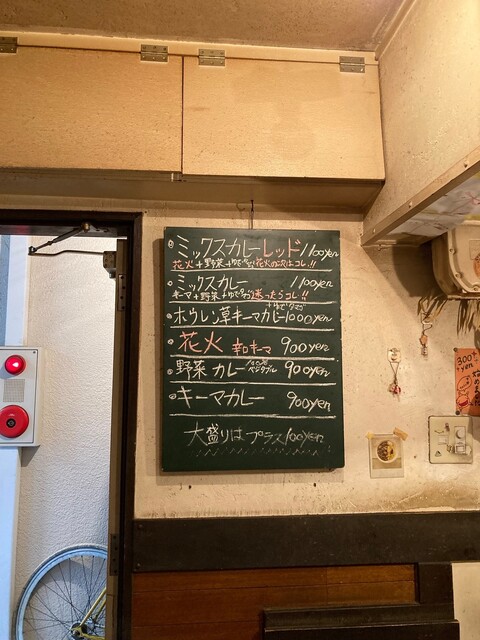 ミックスカレーレッド 1100yen
花火+野菜+ゆでタマゴ 花火の次はコレ!!
ミックスカレー 1100yen
キーマ+野菜+ゆでタマゴ 迷ったらコレ!!
+ゆでタマゴ
ホウレン草キーマカレー 1000yen
花火 辛口キーマ 900yen
野菜カレー ベジタブル 900yen
キーマカレー 900yen
大盛りは プラス100yen
300
yen